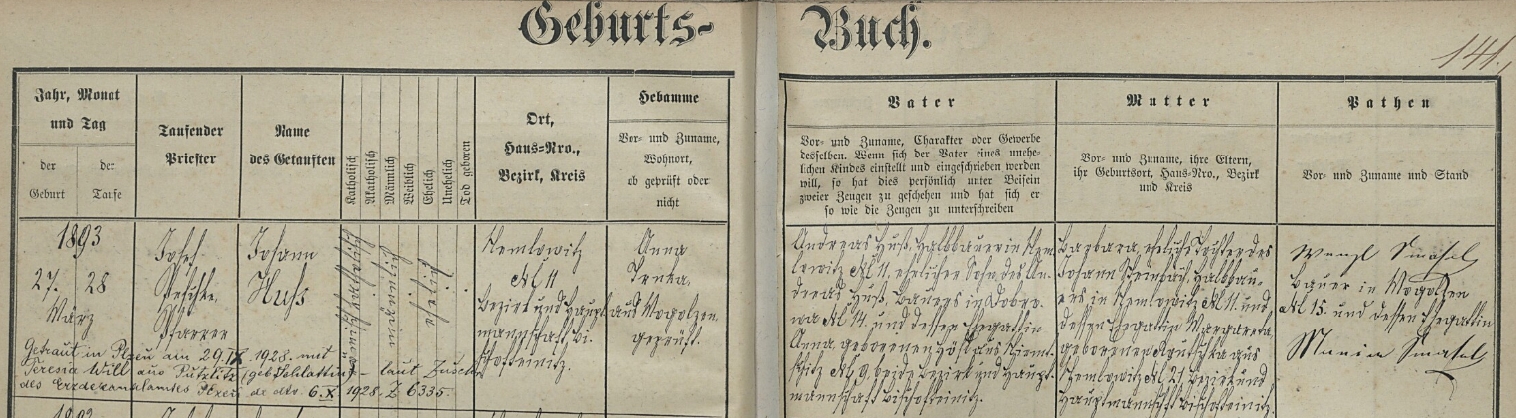 Geburts-
Buch.
141.
Jahr, Monat
und Tag
der
Geburt
der
Taufe
Taufender
Priester
Name
des Getauften
Katholisch
Akatholisch
Männlich
Weiblich
Ehelich
Unehelich
Tod geboren
Ort,
Haus-Nro.,
Bezirk, Kreis
Hebamme
Vor- und Zuname,
Wohnort,
ob geprüft oder
nicht
Vater
Vor- und Zuname, Charakter oder Gewerbe
desselben. Wenn sich der Vater eines unehe-
lichen Kindes einstellt und eingeschrieben werden
will, so hat dies persönlich unter Beisein
zweier Zeugen zu geschehen und hat sich er
so wie die Zeugen zu unterschreiben
Mutter
Vor- und Zuname, ihre Eltern,
ihr Geburtsort, Haus-Nro., Bezirk
und Kreis
Pathen
Vor- und Zuname und Stand
1893
27. 28
März
Josef
Pfarrer
Johann
Huss
ehelich
№ 11
Bezirk und Haupt-
mannschaft Bi-
schofteinitz.
Anna
Trnka
aus Wogolzen
geprüft.
Andreas Huß, Halbbauer in
№ 11, ehelicher Sohn des An-
dreas Huß, Bauers in
№ 14. und dessen Ehegattin
Anna geborenen
№ 9, beide Bezirk und Haupt-
mannschaft Bischofteinitz.
Barbara, eheliche Tochter des
Johann Halbbau-
ers in № 11. und
dessen Ehegattin Margareta
geborenen aus
№ 21 Bezirk und
Hauptmannschaft Bischofteinitz.
Wenzl Smasal
Bauer in Wogolzen
№ 15. und dessen Ehegattin
Maria Smasal
Getraut in Pilsen am 29.IX. 1928. mit
Teresia Will aus
des Erzdekanalamtes Pilsen de dto. 6.X. 1928. Z 6335.